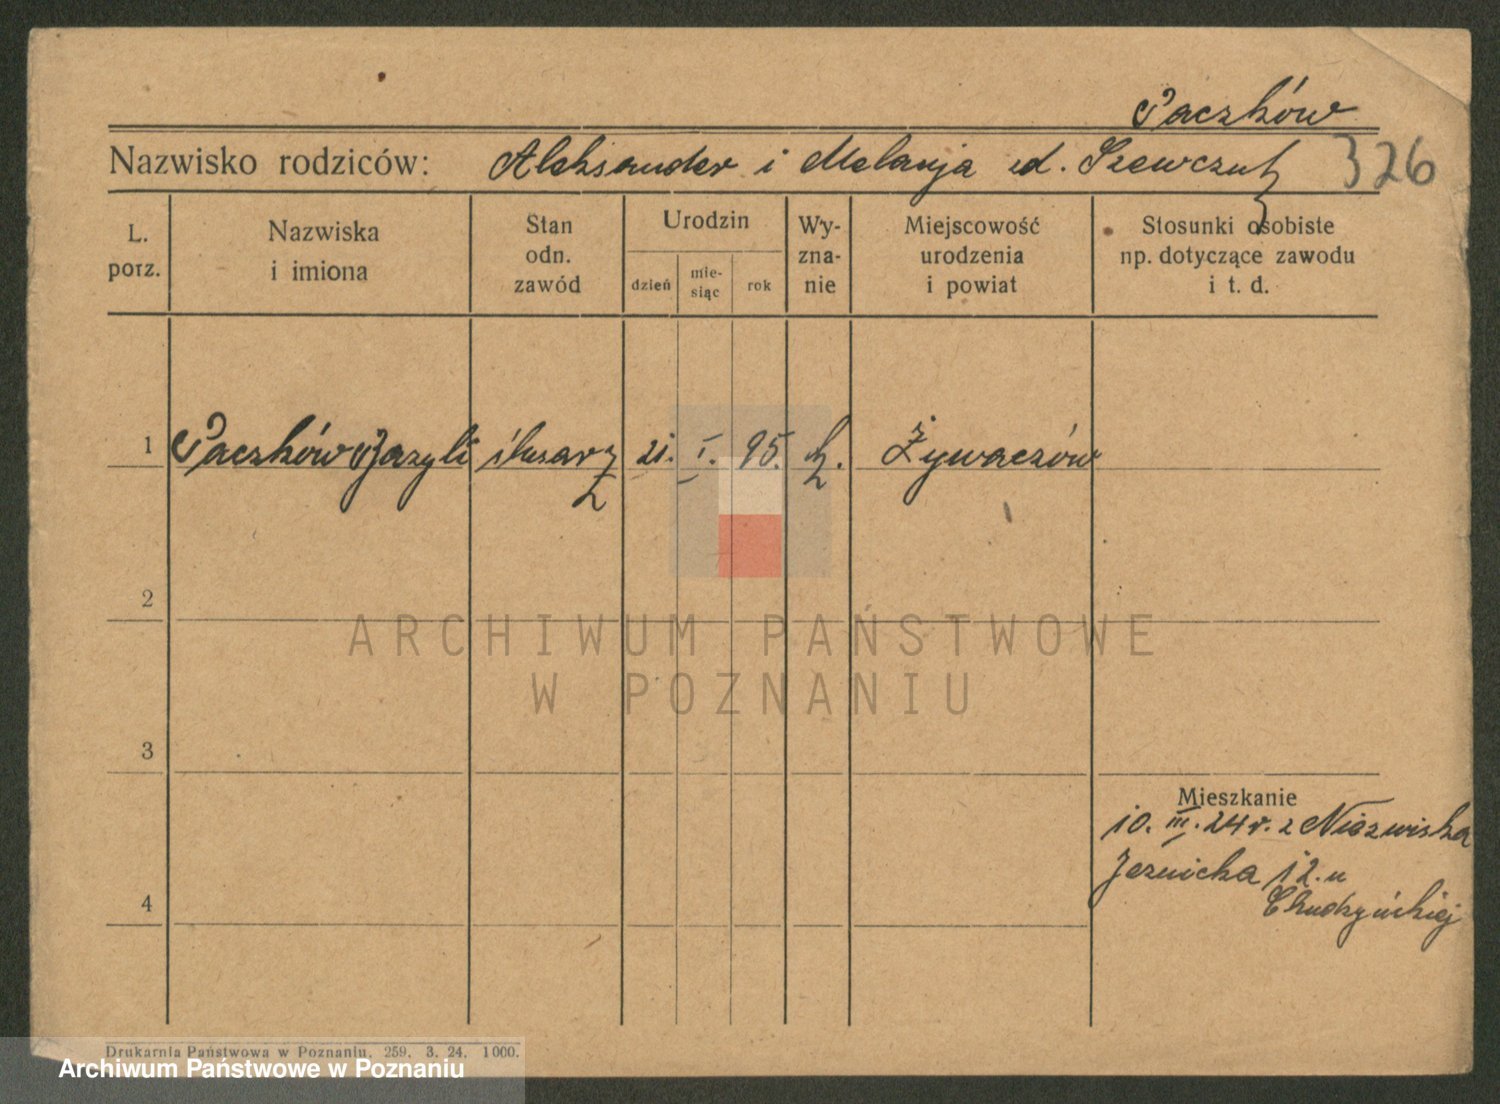 Paczków
Nazwisko rodziców: Aleksander i Melanja zd. Szewczuk
326
L. porz.
Nazwiska i imiona
Stan odn. zawód
Urodzin
dzień
mie-siąc
rok
Wy-zna-nie
Miejscowość urodzenia i powiat
Stosunki osobiste np. dotyczące zawodu i t. d.
1 Paczków Bazyli ślusarz 21. I. 95. Żywaczów
2
3
4
Mieszkanie
10. III. 24 r. z Niezwiska
Jeznicka 12. u
Chudzyńskiej
ARCHIWUM PAŃSTWOWE
W POZNANIU
Drukarnia Państwowa w Poznaniu. 259. 3. 24. 1000.
Archiwum Państwowe w Poznaniu